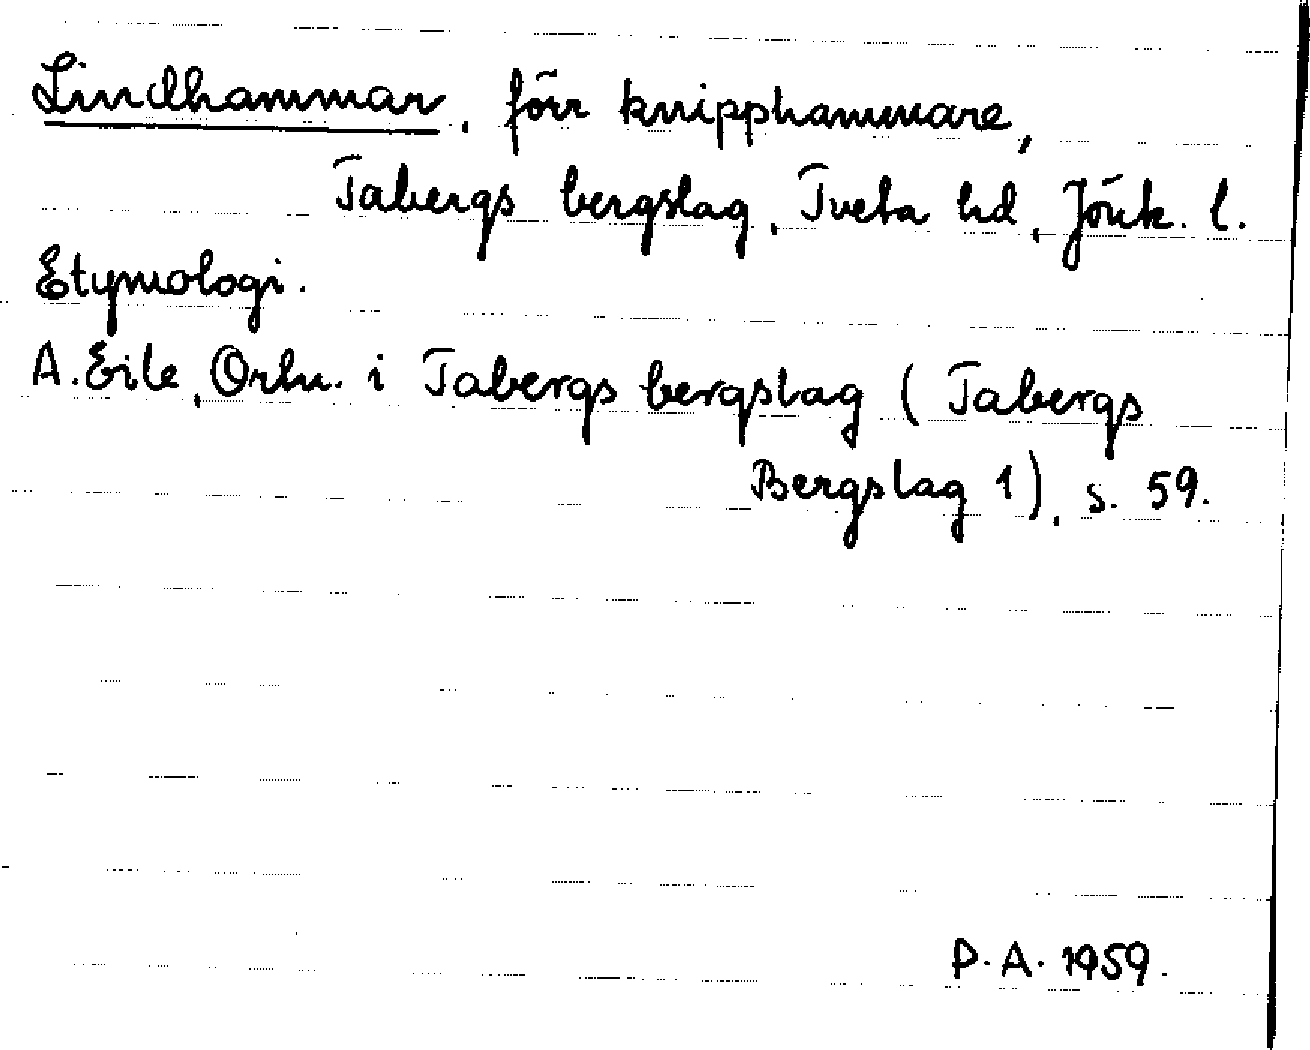 Lindhammar, förr knipphammare,
Tabergs bergslag, Tveta hd, Jönk. l.
Etymologi.
A. Eile, Ortn. i Tabergs bergslag (Tabergs
Bergslag 1), s. 59.
P.A. 1959.